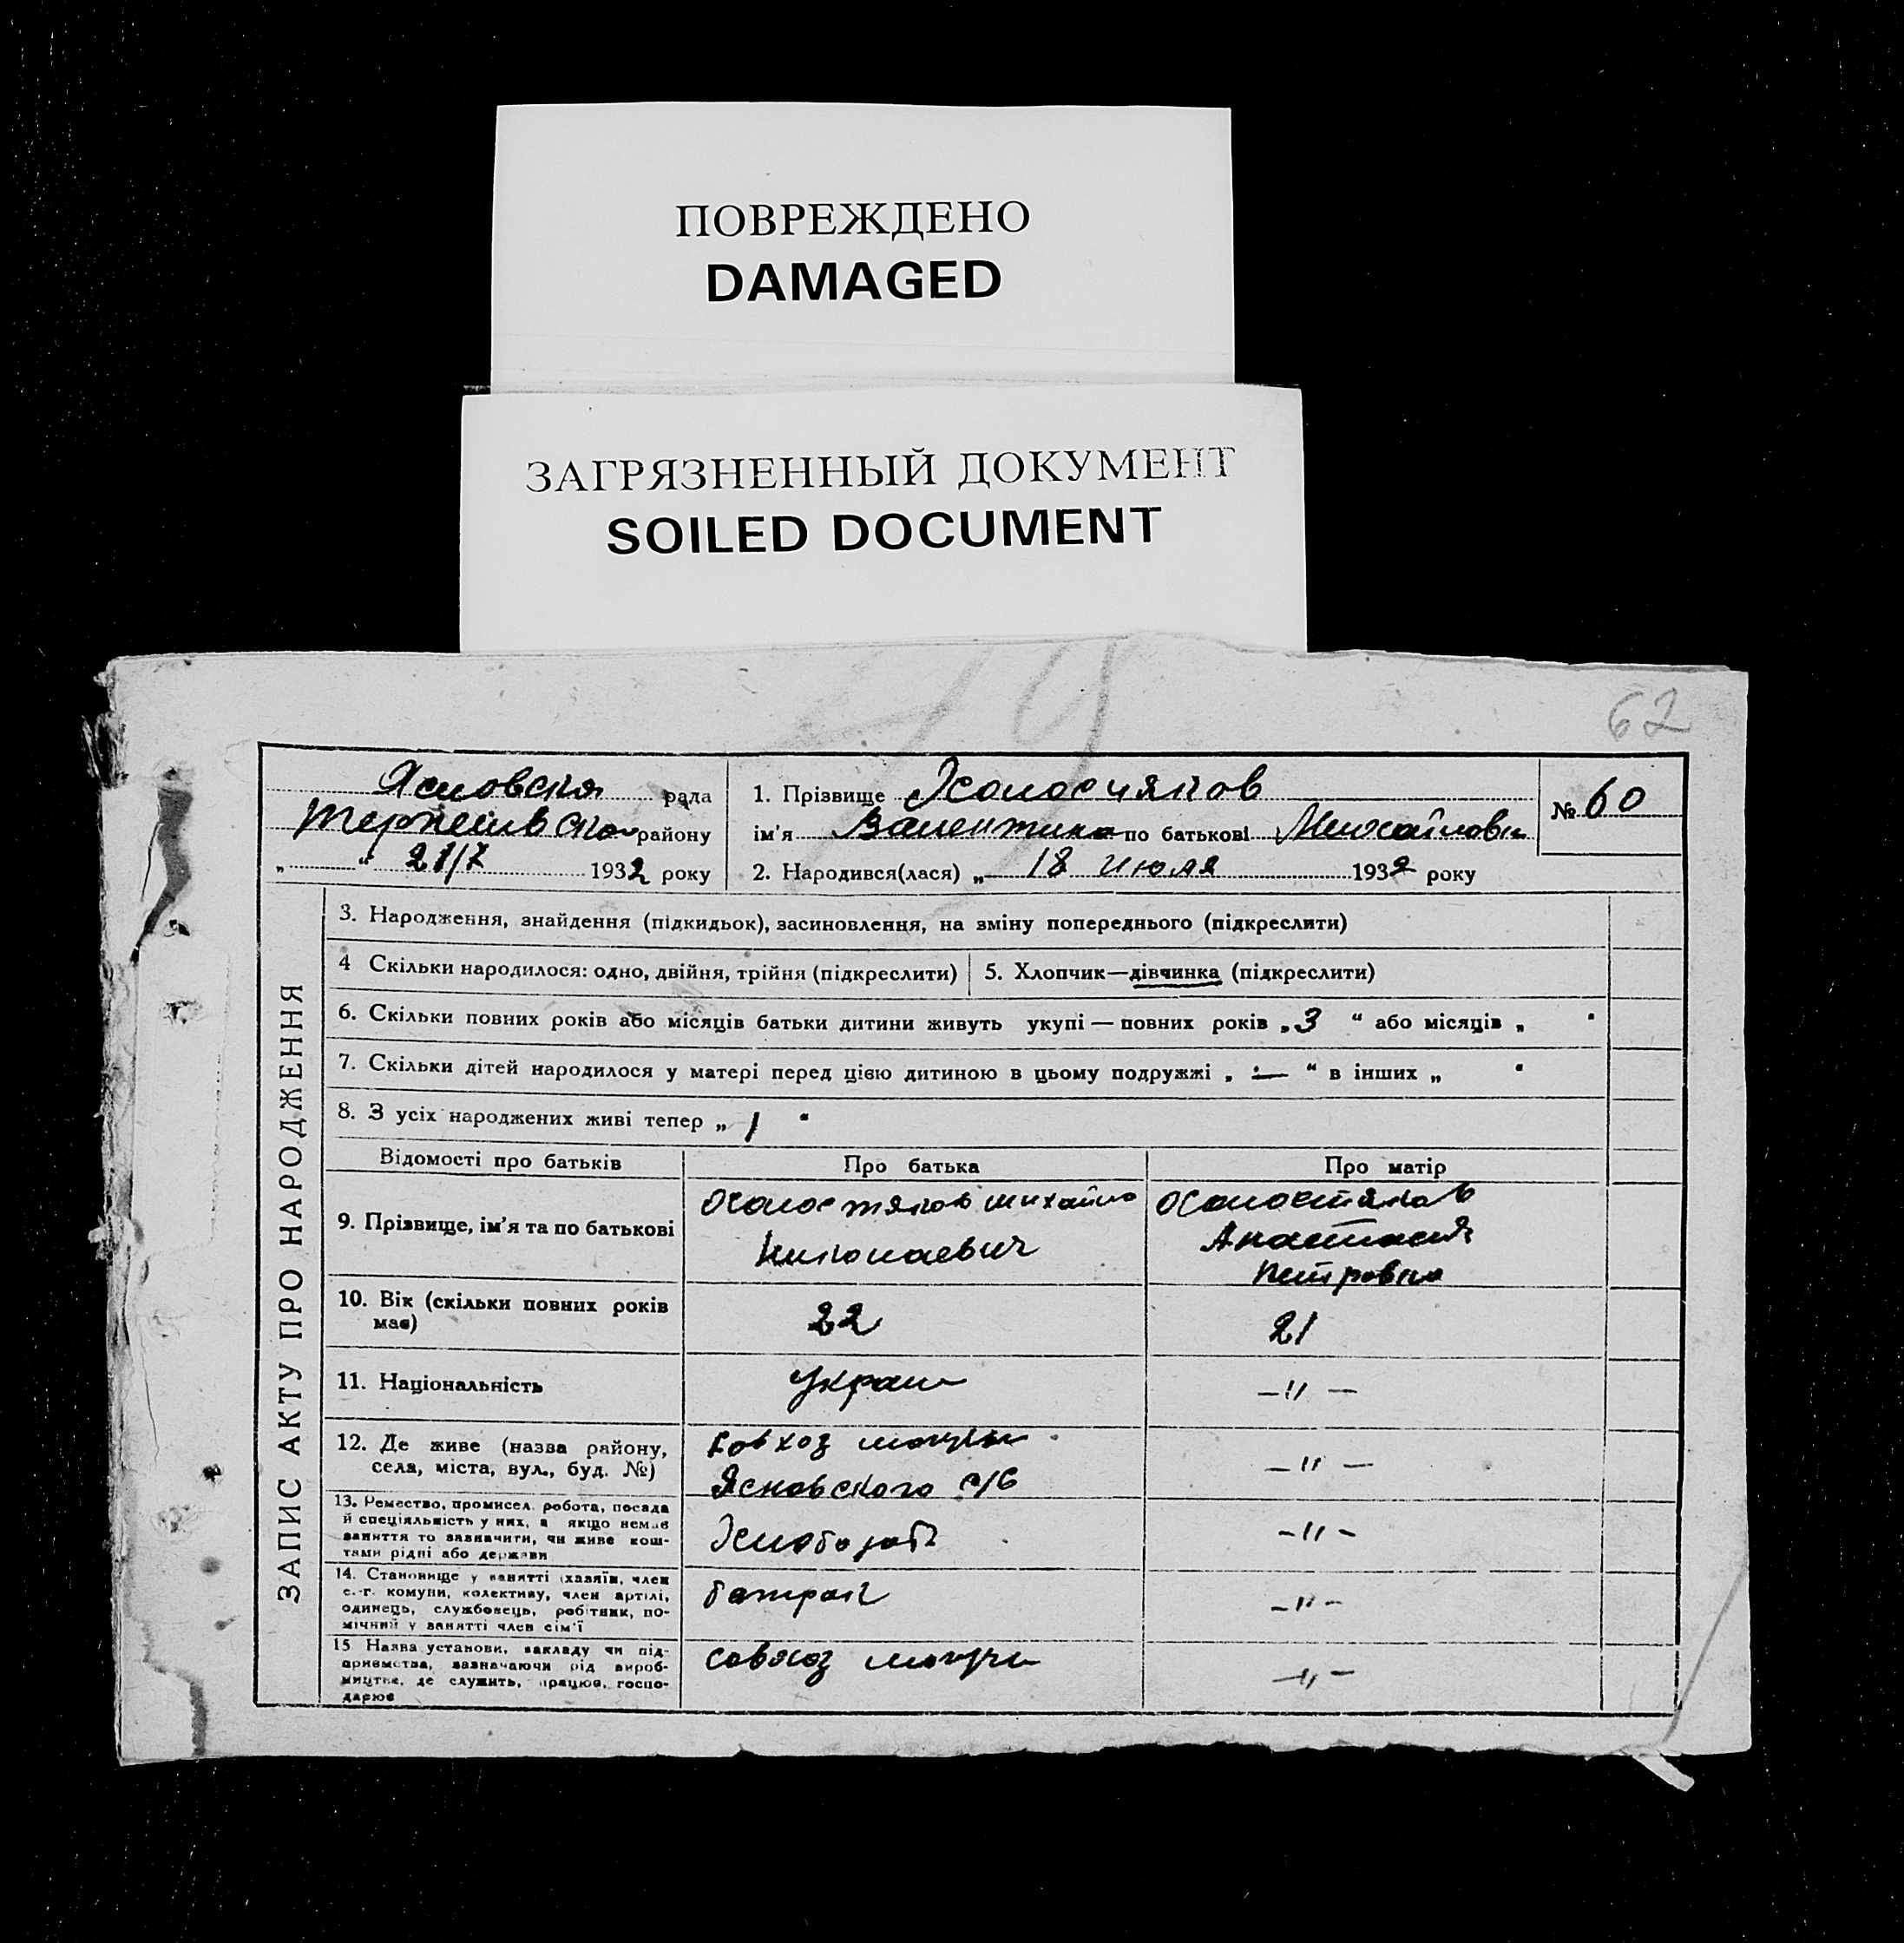 ПОВРЕЖДЕНО
DAMAGED
ЗАГРЯЗНЕННЫЙ ДОКУМЕНТ
SOILED DOCUMENT
19
62
Ясновска рада
району
„ “ 21/7 1932 року
1. Прізвище Холостяков
ім’я Валентина по батькові Михайловн
2. Народився(лася) „ 18 июля 1932 року
№ 60
ЗАПИС АКТУ ПРО НАРОДЖЕННЯ
3. Народження, знайдення (підкидьок), засиновлення, на зміну попереднього (підкреслити)
4 Скільки народилося: одно, двійня, трійня (підкреслити)
5. Хлопчик—дівчинка (підкреслити)
6. Скільки повних років або місяців батьки дитини живуть укупі — повних років „ 3 “ або місяців „ “
7. Скільки дітей народилося у матері перед цією дитиною в цьому подружжі „ — “ в інших „ “
8. З усіх народжених живі тепер „ 1 “
Відомості про батьків Про батька Про матір
9. Прізвище, ім’я та по батькові
Холостяков Михайло
Николаевич
Холостяков
Анастасия
Петровна
10. Вік (скільки повних років
має)
22
21
11. Національність
Украин
—〃—
12. Де живе (назва району,
села, міста, вул., буд. №)
Совхоз
Ясновского с/с
—〃—
13. Ремество, промисел, робота, посада
й спеціяльність у них, а якщо немає
заняття то зазначити, чи живе кош-
тами рідні або держави
Хлебороб
—〃—
14. Становище у занятті (хазяїн, член
с.-г. комуни, колективу, член артілі,
одинець, службовець, робітник, по-
мічний у занятті член сім’ї
батрак
—〃—
15 Назва установи, закладу чи під-
приємства, зазначаючи рід вироб-
ництва, де служить, працює, госпо-
дарює
совхоз
—〃—